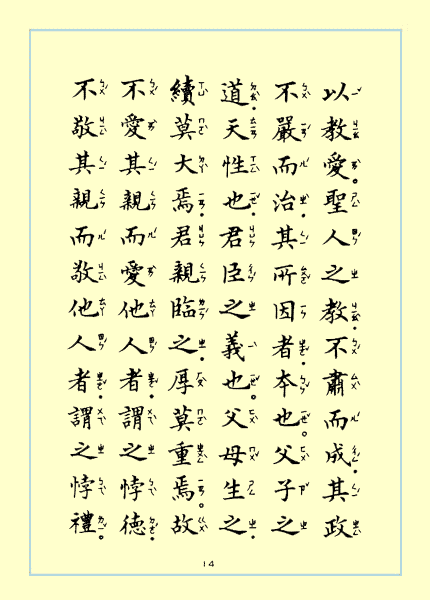 以教愛。聖人之教．不肅而成．其政
不嚴而治．其所因者．本也。父子之
道．天性也．君臣之義也。父母生之．
續莫大焉．君親臨之．厚莫重焉。故
不愛其親而愛他人者．謂之悖德．
不敬其親而敬他人者．謂之悖禮。
14